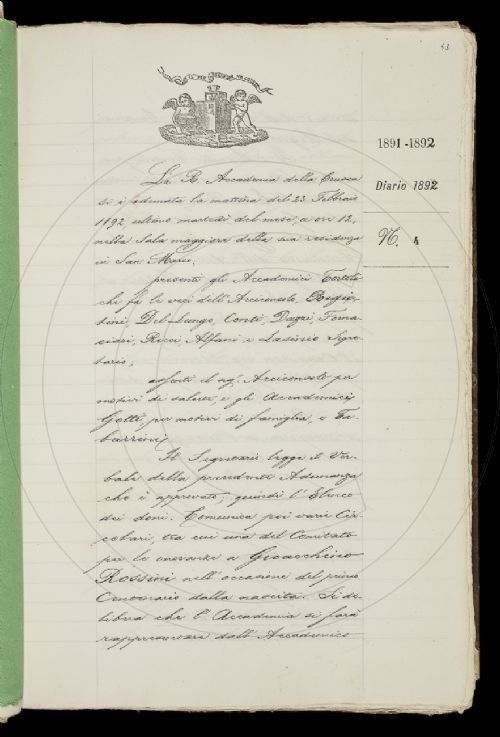 43
1891-1892
Diario 1892
N. 4
La R. Accademia della Crusca
si è adunata la mattina del 23 Febbraio
1892 ultimo martedì del mese, a ore 12,
nella Sala maggiore della sua residenza
in San Marco,
presenti gli Accademici Tortoli
che fa le veci dell'Arciconsolo, Rigu-
tini, Del-Lungo, Conti, Dazzi, Forna-
ciari, Ricci, Alfani e Lasinio Segre-
tario;
assenti il sig. Arciconsolo per
motivi di salute, e gli Accademici
Gotti, per motivi di famiglia, e Ta-
barrini.
Il Segretario legge il Ver-
bale della precedente Adunanza
che è approvato; quindi l'Elenco
dei doni. Comunica poi varie Cir-
colari, tra cui una del Comitato
per le onoranze a Gioacchino
Rossini nell'occasione del primo
Centenario dalla nascita. Si de-
libera che l'Accademia si farà
rappresentare dall'Accademico